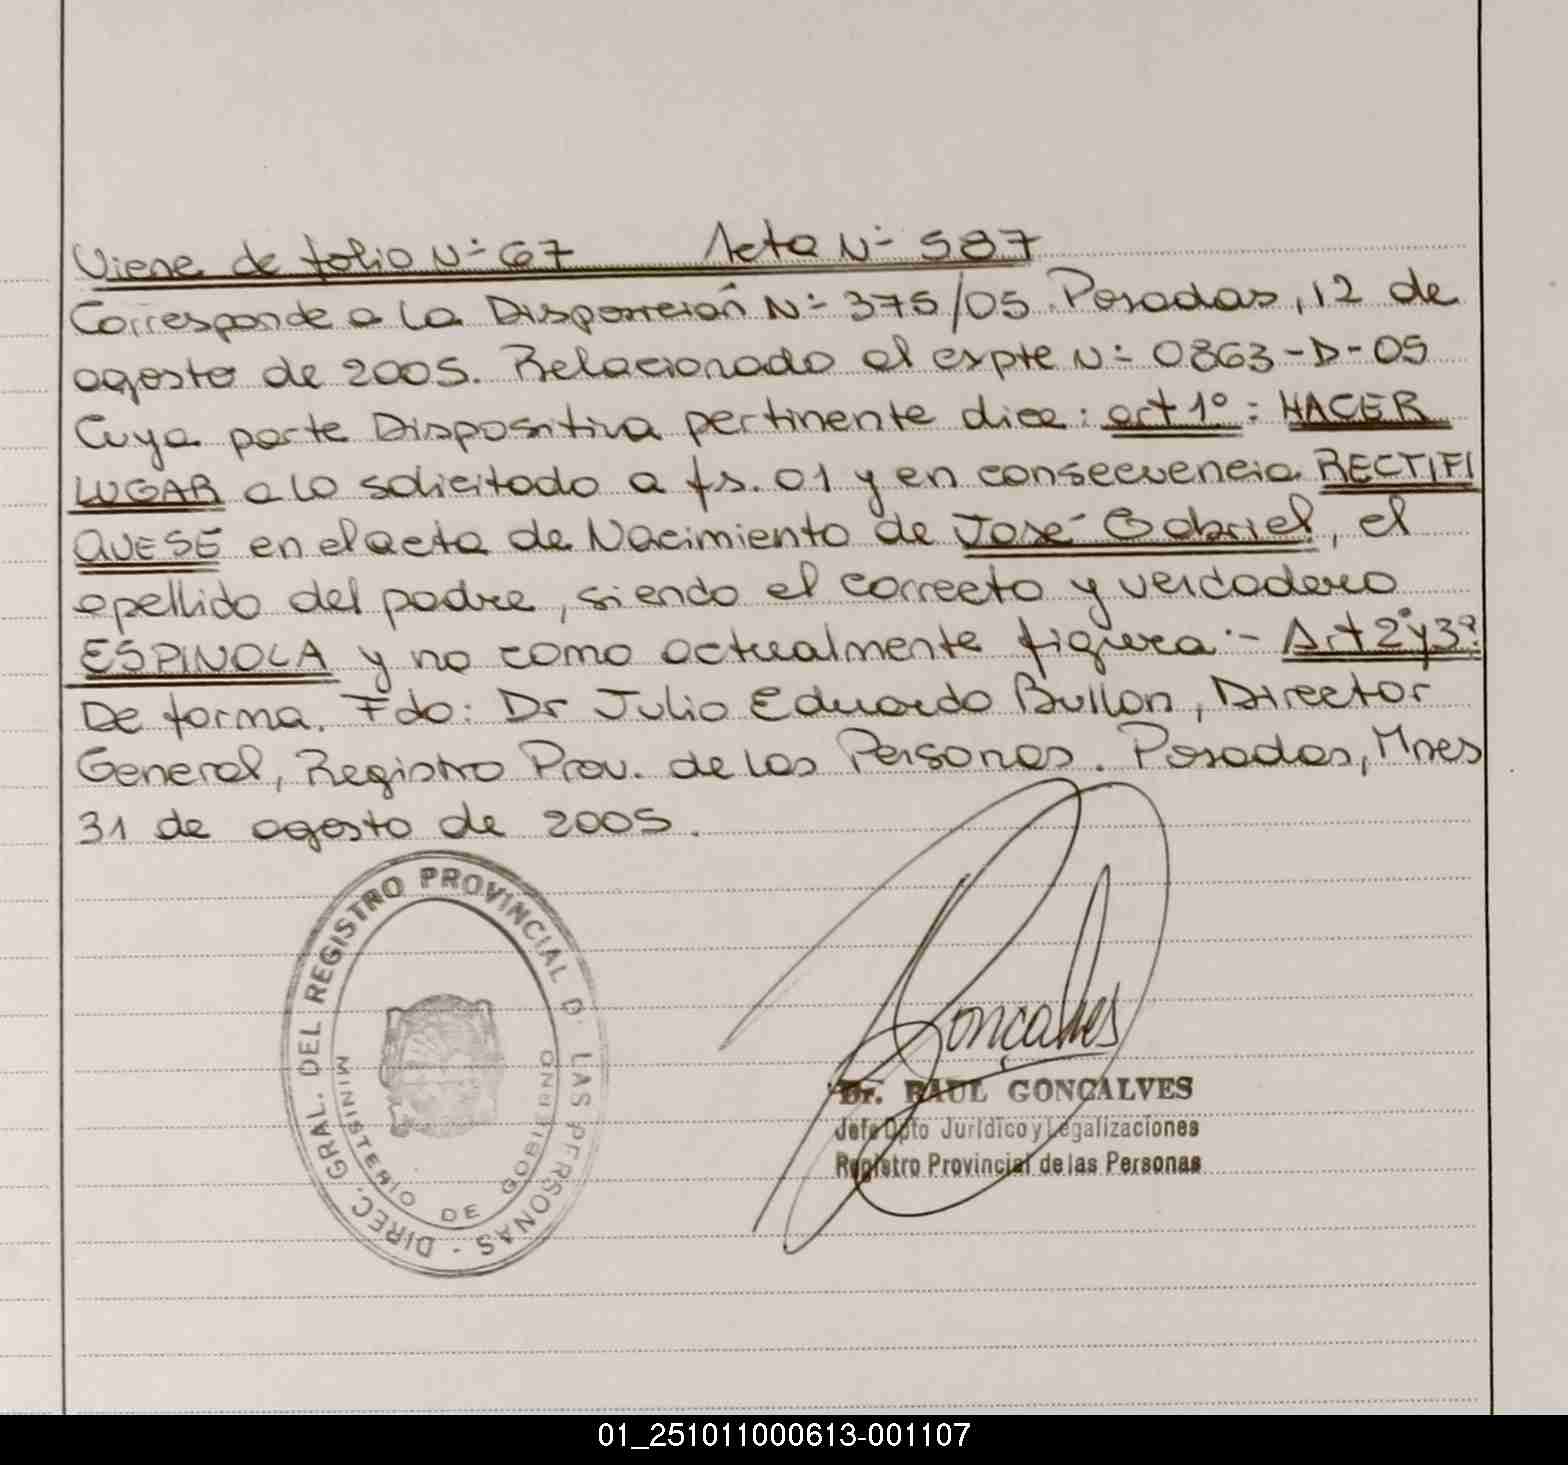 Viene de folio Nº 67 Acta Nº 587
Corresponde a la Disposición Nº 375/05. Posadas, 12 de
agosto de 2005. Relacionado al expte Nº 0863-D-05
Cuya parte Dispositiva pertinente dice: art 1º: HACER
LUGAR a lo solicitado a fs. 01 y en consecuencia RECTIFI
QUESE en el acta de Nacimiento de José Gabriel, el
apellido del padre, siendo el correcto y verdadero
ESPINOLA y no como actualmente figura.- Art 2º y 3º:
De forma. Fdo: Dr Julio Eduardo Bullon, Director
General, Registro Prov. de las Personas. Posadas, Mnes
31 de agosto de 2005.
DIREC. GRAL. DEL REGISTRO PROVINCIAL D. LAS PERSONAS -
MINISTERIO DE GOBIERNO
Gonçalves
Dr. RAUL GONÇALVES
Jefe Dpto Jurídico y Legalizaciones
Registro Provincial de las Personas
01_251011000613-001107